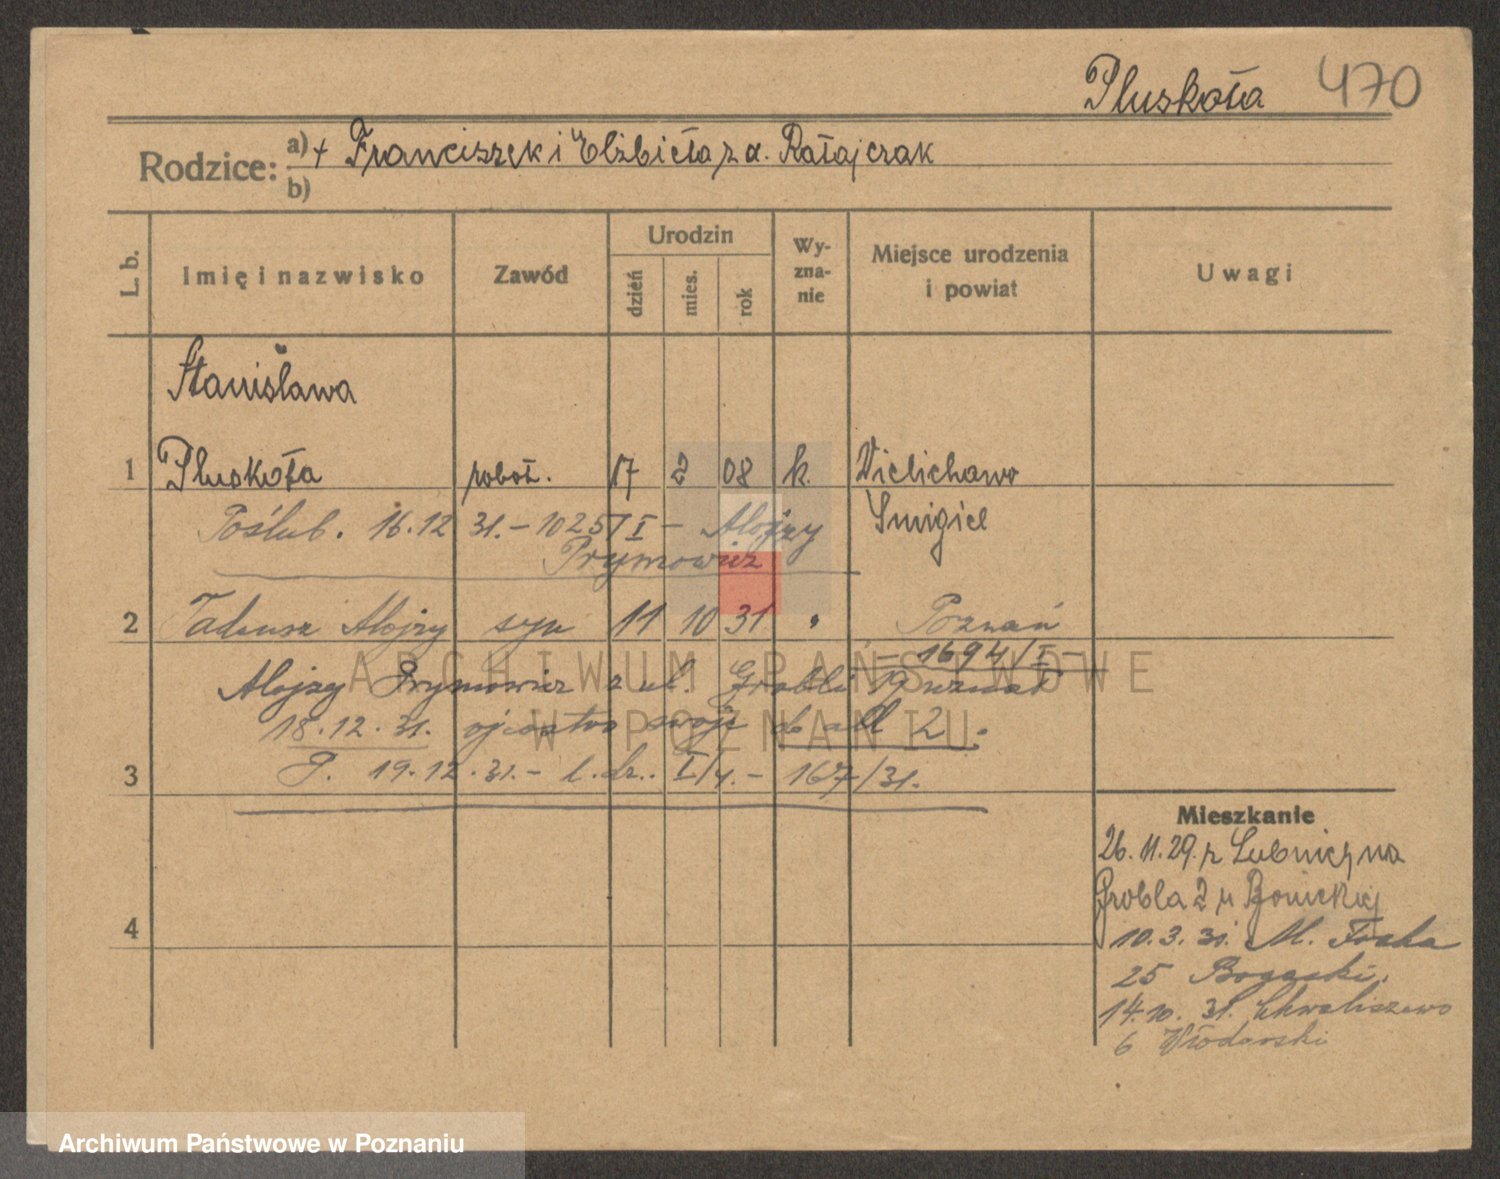 Pluskota 470
Rodzice: a) + Franciszek i Elżbieta z d. Ratajczak
b)
L. b. Imię i nazwisko Zawód Urodzin dzień mies. rok Wy-zna-nie Miejsce urodzenia i powiat Uwagi
Stanisława
1 Pluskota robot. 17 2 08 k. Wielichowo
Poślub. 16.12 31. - 1025/I - Alojzy Śmigiel
Prymowicz
2 Tadeusz Alojzy syn 11 10 31 " Poznań
- 1694/I -
Alojzy Prymowicz z ul. Grobli 19 uznał
18.12.31. ojcostwo swoje do ad 2.
3 P. 19.12.31. - l. dz. I/4. - 167/31.
Mieszkanie
26.11.29. z Lubnicy na
Grobla 2 u
4
10.3.31. M. Focha
25
14.10.31. Chwaliszewo
6 Włodarski
ARCHIWUM PAŃSTWOWE
W POZNANIU
Archiwum Państwowe w Poznaniu